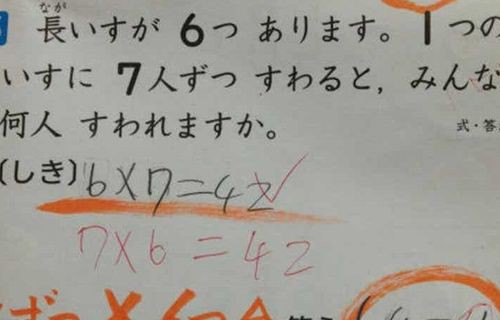 なが
長いすが 6つ あります。1つの
いすに 7人ずつ すわると、みんな
何人 すわれますか。
式・答
(しき) 6×7=42
7×6=42